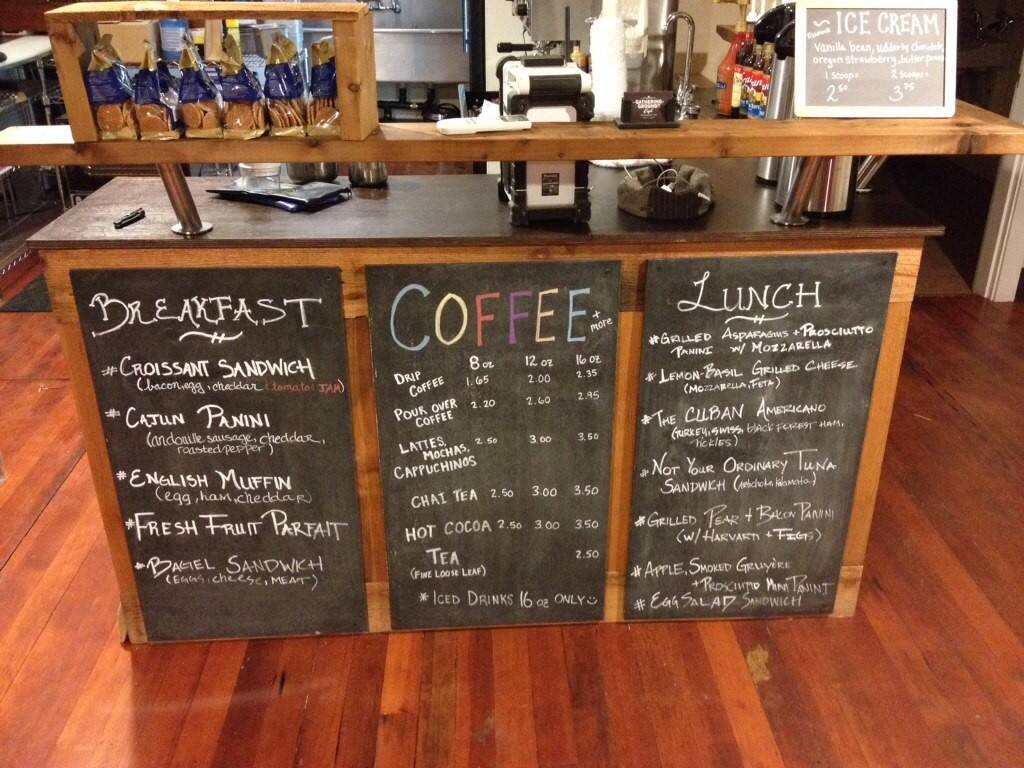 ICE CREAM
vanilla bean, udderly chocolate,
oregon strawberry, butter pecan
1 scoop = 2 scoops =
2.50 3.75
GATHERING
GROUNDS
BREAKFAST
#CROISSANT SANDWICH
(bacon, egg, cheddar, tomato JAM)
# CAJUN PANINI
(andouille sausage, cheddar,
roasted pepper)
#ENGLISH MUFFIN
(egg, ham, cheddar)
#FRESH FRUIT PARFAIT
#BAGEL SANDWICH
(EGGS, cheese, MEAT)
COFFEE + more
8 oz 12 oz 16 oz
DRIP
COFFEE 1.65 2.00 2.35
POUR OVER
COFFEE 2.20 2.60 2.95
LATTES,
MOCHAS, 2.50 3.00 3.50
CAPPUCHINOS
CHAI TEA 2.50 3.00 3.50
HOT COCOA 2.50 3.00 3.50
TEA 2.50
(FINE LOOSE LEAF)
* ICED DRINKS 16 oz ONLY
LUNCH
#GRILLED ASPARAGUS + PROSCIUTTO
PANINI W/ MOZZARELLA
#LEMON-BASIL GRILLED CHEESE
(MOZZARELLA, FETA)
#THE CUBAN AMERICANO
(TURKEY, SWISS, BLACK FOREST HAM,
PICKLES)
#NOT YOUR ORDINARY TUNA
SANDWICH (artichoke, kalamata)
#GRILLED PEAR + BACON PANINI
(W/ HAVARTI + FIGS)
#APPLE, SMOKED GRUYÈRE
+ PROSCIUTTO MINI PANINI
#EGG SALAD SANDWICH